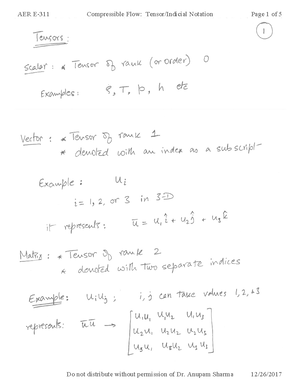 AER E-311 Compressible Flow: Tensor/Indicial Notation Page 1 of 5
1
Tensors:
Scalar: * Tensor of rank (or order) 0
Examples: ρ, T, p, h etc
Vector: * Tensor of rank 1
* denoted with an index as a subscript
Example: uᵢ
i = 1, 2, or 3 in 3D
it represents: ū = u₁î + u₂ĵ + u₃k̂
Matrix: * Tensor of rank 2
* denoted with two separate indices
Example: uᵢuⱼ ; i, j can take values 1, 2, +3
represents: ūū → [u₁u₁ u₁u₂ u₁u₃
u₂u₁ u₂u₂ u₂u₃
u₃u₁ u₃u₂ u₃u₃]
Do not distribute without permission of Dr. Anupam Sharma 12/26/2017